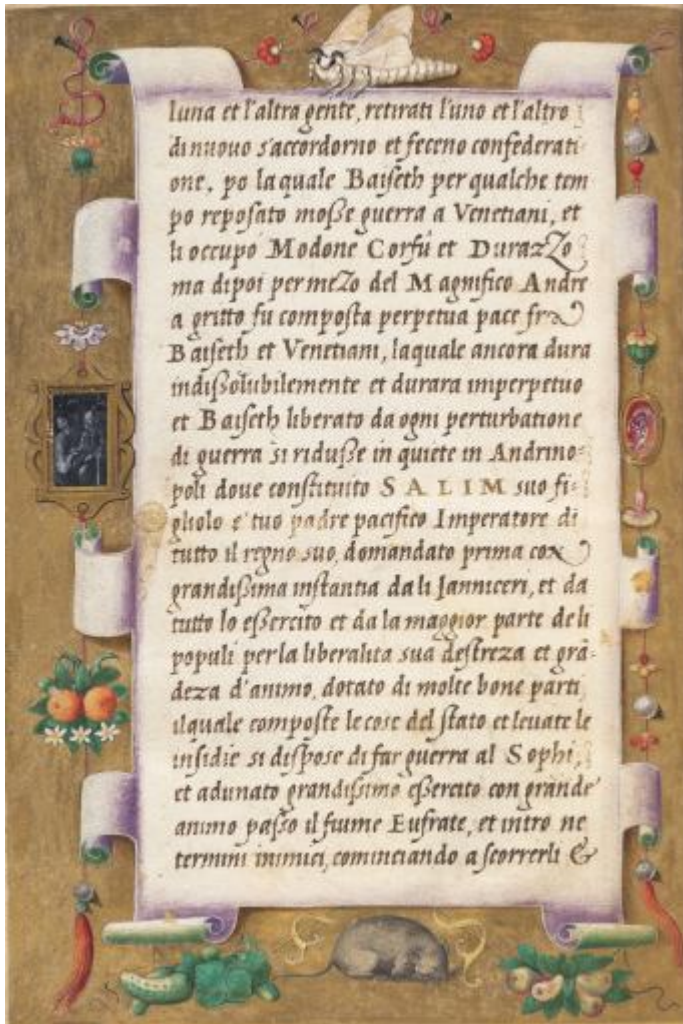 luna et l'altra gente, retirati l'uno et l'altro
di nuovo s'accordorno et feceno confederati-
one. po la quale Baiseth per qualche tem
po reposato moße guerra a Venetiani, et
li occupò Modone Corfù et DurazZo
ma dipoi per meZo del Magnifico Andre
a gritto fu composta perpetua pace fra
Baiseth et Venetiani, laquale ancora dura
indißolubilemente et durara imperpetuo
et Baiseth liberato da ogni perturbatione
di guerra si riduße in quiete in Andrino-
poli doue constituito SALIM suo fi-
gliolo e tuo padre pacifico Imperatore di
tutto il regno suo, domandato prima con
grandißima instantia da li Janniceri, et da
tutto lo eßercito et da la maggior parte de li
populi per la liberalita sua destreza et grã-
deza d'animo, dotato di molte bone parti
ilquale composte le cose del stato et leuate le
insidie si dispose di far guerra al Sophi,
et adunato grandißimo eßercito con grande
animo paßo il fiume Eufrate, et intro ne
termini inimici, cominciando a scorrerli &